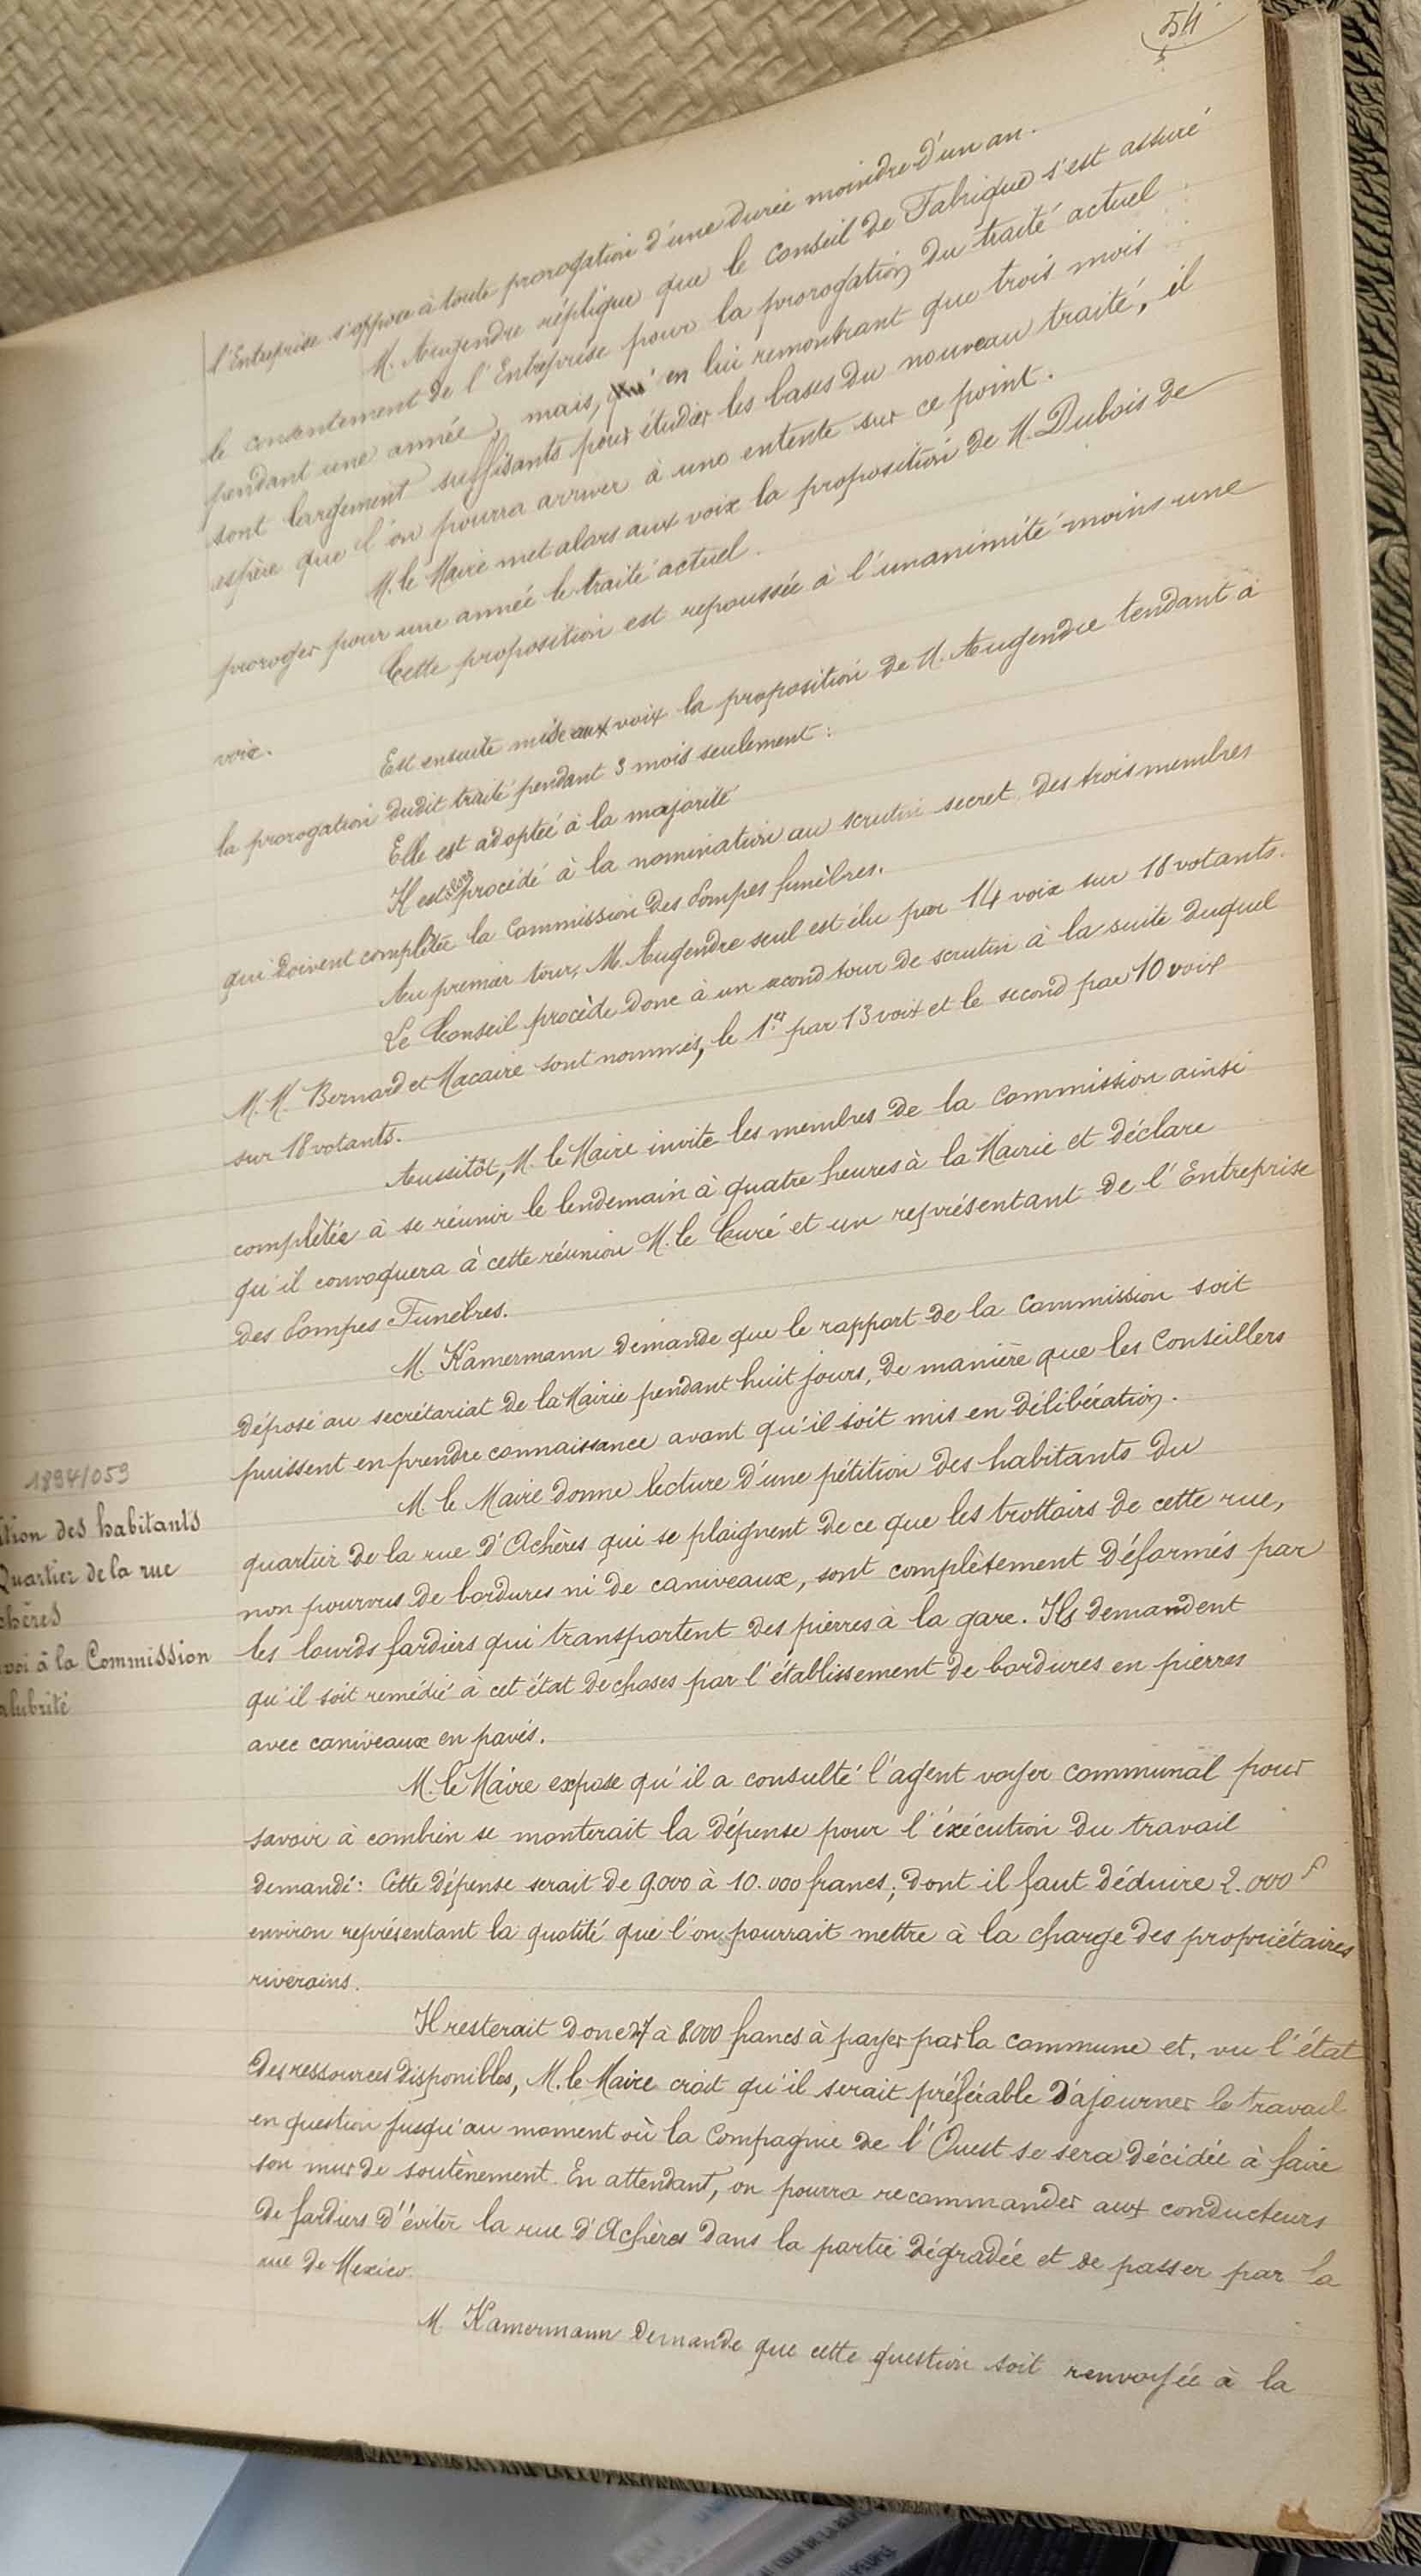 54
l'Entreprise s'oppose à toute prorogation d'une durée moindre d'un an.
M. Augendre réplique que le Conseil de Fabrique s'est assuré
le consentement de l'Entreprise pour la prorogation du traité actuel
pendant une année, mais, en lui remontrant que trois mois
sont largement suffisants pour étudier les bases du nouveau traité, il
espère que l'on pourra arriver à une entente sur ce point.
M. le Maire met alors aux voix la proposition de M. Dubois de
proroger pour une année le traité actuel.
Cette proposition est repoussée à l'unanimité moins une
voix.
Est ensuite mise aux voix la proposition de M. Augendre tendant à
la prorogation dudit traité pendant 3 mois seulement :
Elle est adoptée à la majorité
Il est alors procédé à la nomination au scrutin secret des trois membres
qui doivent compléter la Commission des Pompes funèbres.
Au premier tour, M. Augendre seul est élu par 14 voix sur 18 votants.
Le Conseil procède donc à un second tour de scrutin à la suite duquel
M.M. Bernard et Macaire sont nommés, le 1er par 13 voix et le second par 10 voix
sur 18 votants.
Aussitôt, M. le Maire invite les membres de la Commission ainsi
complétée à se réunir le lendemain à quatre heures à la Mairie et déclare
qu'il convoquera à cette réunion M. le Curé et un représentant de l'Entreprise
des Pompes Funèbres.
M. Kamermann demande que le rapport de la Commission soit
déposé au secrétariat de la Mairie pendant huit jours, de manière que les Conseillers
puissent en prendre connaissance avant qu'il soit mis en délibération.
1894/059
ition des habitants
Quartier de la rue
chères
voi à la Commission
alubrité
M. le Maire donne lecture d'une pétition des habitants du
quartier de la rue d'Achères qui se plaignent de ce que les trottoirs de cette rue,
non pourvus de bordures ni de caniveaux, sont complètement déformés par
les lourds fardiers qui transportent des pierres à la gare. Ils demandent
qu'il soit remédié à cet état de choses par l'établissement de bordures en pierres
avec caniveaux en pavés.
M. le Maire expose qu'il a consulté l'agent voyer communal pour
savoir à combien se monterait la dépense pour l'exécution du travail
demandé : Cette dépense serait de 9.000 à 10.000 francs ; dont il faut déduire 2.000 f
environ représentant la quotité que l'on pourrait mettre à la charge des propriétaires
riverains.
Il resterait donc 7 à 8000 francs à payer par la commune et, vu l'état
des ressources disponibles, M. le Maire croit qu'il serait préférable d'ajourner le travail
en question jusqu'au moment où la Compagnie de l'Ouest se sera décidée à faire
son mur de soutènement. En attendant, on pourra recommander aux conducteurs
de fardiers d'éviter la rue d'Achères dans la partie dégradée et de passer par la
rue de Mexico.
M. Kamermann demande que cette question soit renvoyée à la